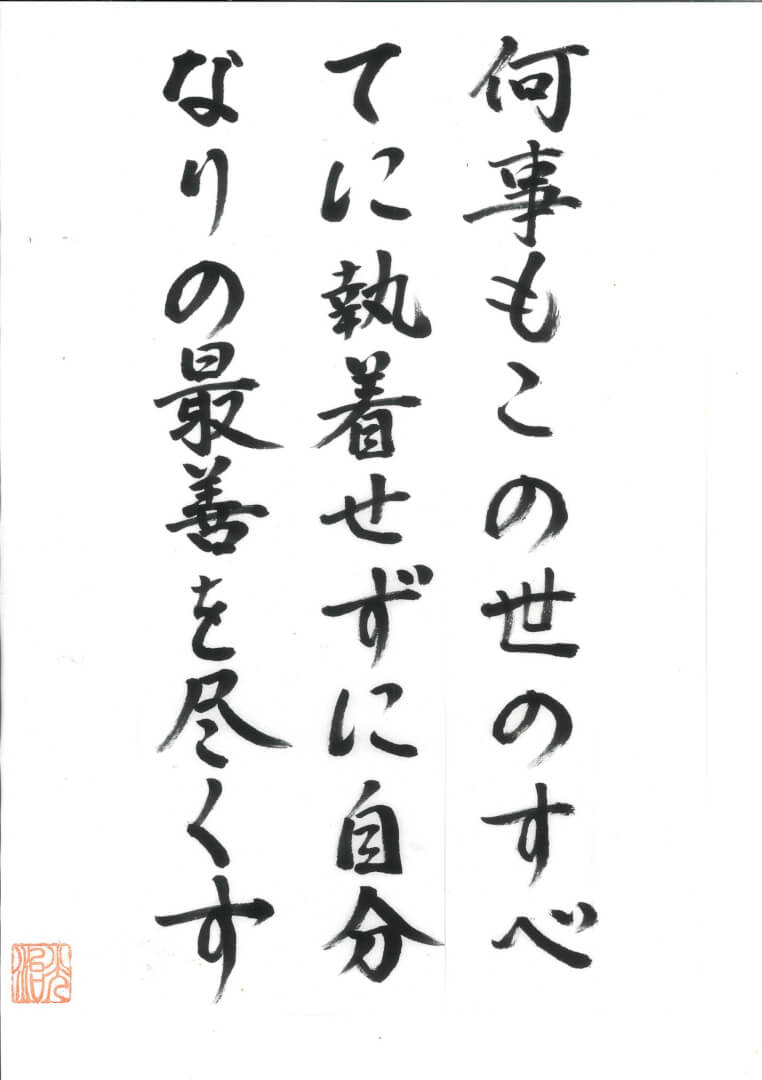 何事もこの世のすべ
てに執着せずに自分
なりの最善を尽くす